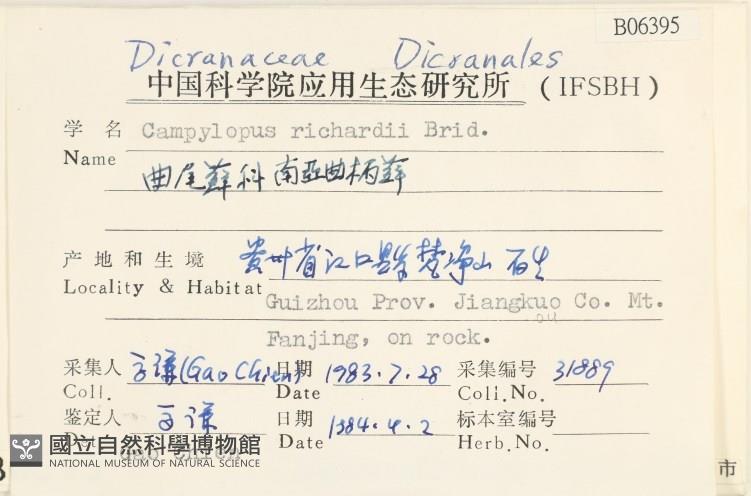 B06395
Dicranaceae Dicranales
中国科学院应用生态研究所 (IFSBH)
学名 Campylopus richardii Brid.
Name
曲尾藓科 南亚曲柄藓
产地和生境 贵州省江口县梵净山 石生
Locality & Habitat Guizhou Prov. Jiangkuo Co. Mt.
ou
Fanjing, on rock.
采集人 高谦(Gao Chien) 日期 1983.7.28 采集编号 31889
Coll. Date Coll.No.
鉴定人 高谦 日期 1984.4.2 标本室编号
Det. Date Herb.No.
Gao Chien
國立自然科學博物館
NATIONAL MUSEUM OF NATURAL SCIENCE
市